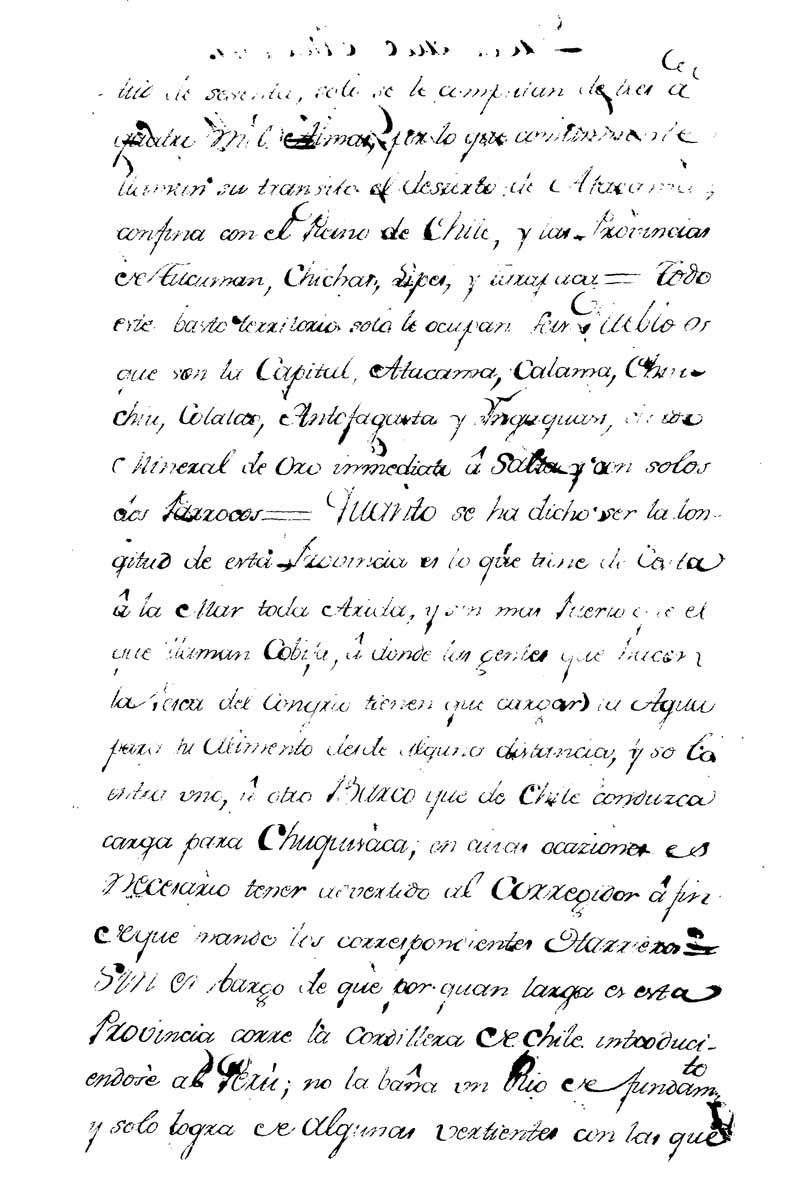 de sesenta, solo se le computan de tres â
quatro Mil Almas, por lo que
su transito el desierto de Atacama;
confina con el Reino de Chile, y las Provincias
de Tucuman, Chichas, Lipes, y tarapaca = Todo
este basto territorio solo le ocupan Seis Pueblos
que son la Capital, Atacama, Calama, Chiu-
chiu, Antofagasta y
Mineral de Oro inmediato â Salta y con solos
dos Parrocos = Quanto se ha dicho ser la lon-
gitud de esta Provincia es lo que tiene de Costa
â la Mar toda Arida, y sin mas Puerto que el
que llaman Cobija, â donde las gentes que hacen
la Pesca del Congrio tienen que cargar Agua
para su Alimento desde alguna distancia, y so lo
entra uno, û otro Barco que de Chile conduzca
carga para Chuquisaca; en cuias ocaziones es
Necesario tener advertido al Corregidor â fin
de que mande los correspondientes Harrieros =
Sin embargo de que por quan larga es esta
Provincia corre la Cordillera de Chile introduci-
endose al Perú; no la baña un Rio de fundam.to
y solo logra de Algunas vertientes con las que